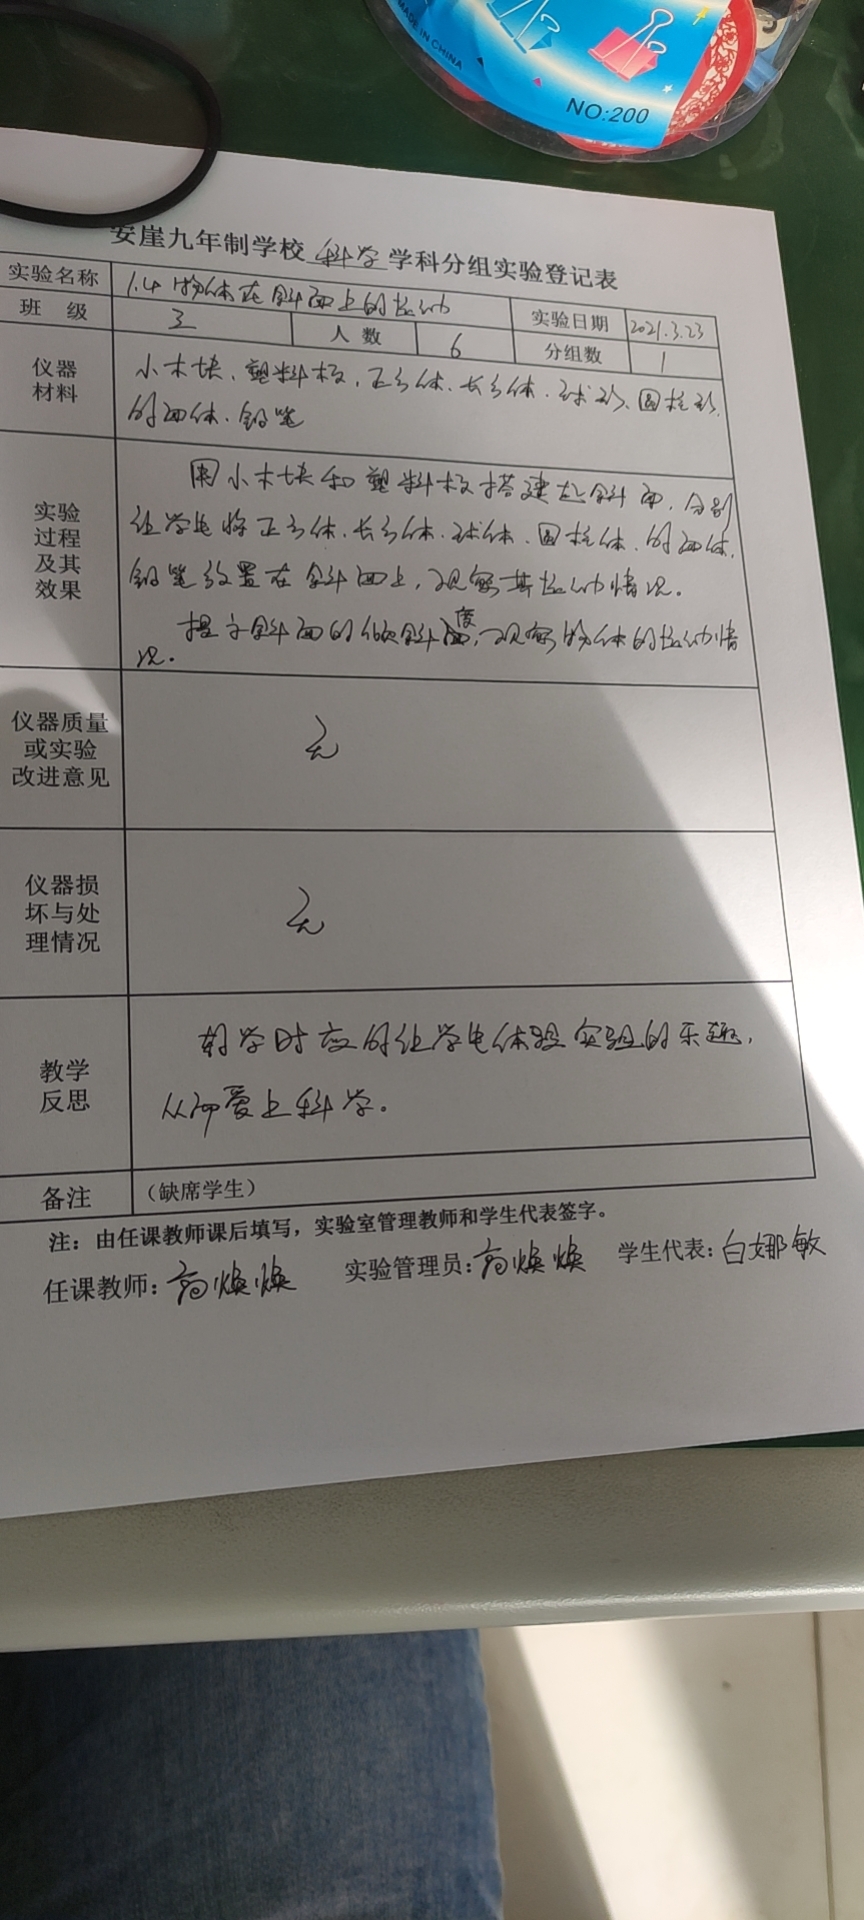 MADE IN CHINA
NO:200
安崖九年制学校 科学 学科分组实验登记表
实验名称 1.4 物体在斜面上的运动 实验日期 2021.3.23
班 级 三 人 数 6 分组数 1
仪器
材料
小木块、塑料板、正方体、长方体、球形、圆柱形、
的面体、钢笔
实验
过程
及其
效果
用小木块和塑料板搭建起斜面,分别
让学生将正方体、长方体、球体、圆柱体、的面体、
钢笔放置在斜面上,观察其运动情况。
提高斜面的倾斜度,观察物体的运动情
况。
仪器质量
或实验
改进意见
无
仪器损
坏与处
理情况
无
教学
反思
教学时应时让学生体验实验的乐趣,
从而爱上科学。
备注 (缺席学生)
注:由任课教师课后填写,实验室管理教师和学生代表签字。
任课教师: 焕焕 实验管理员: 焕焕 学生代表:白娜敏